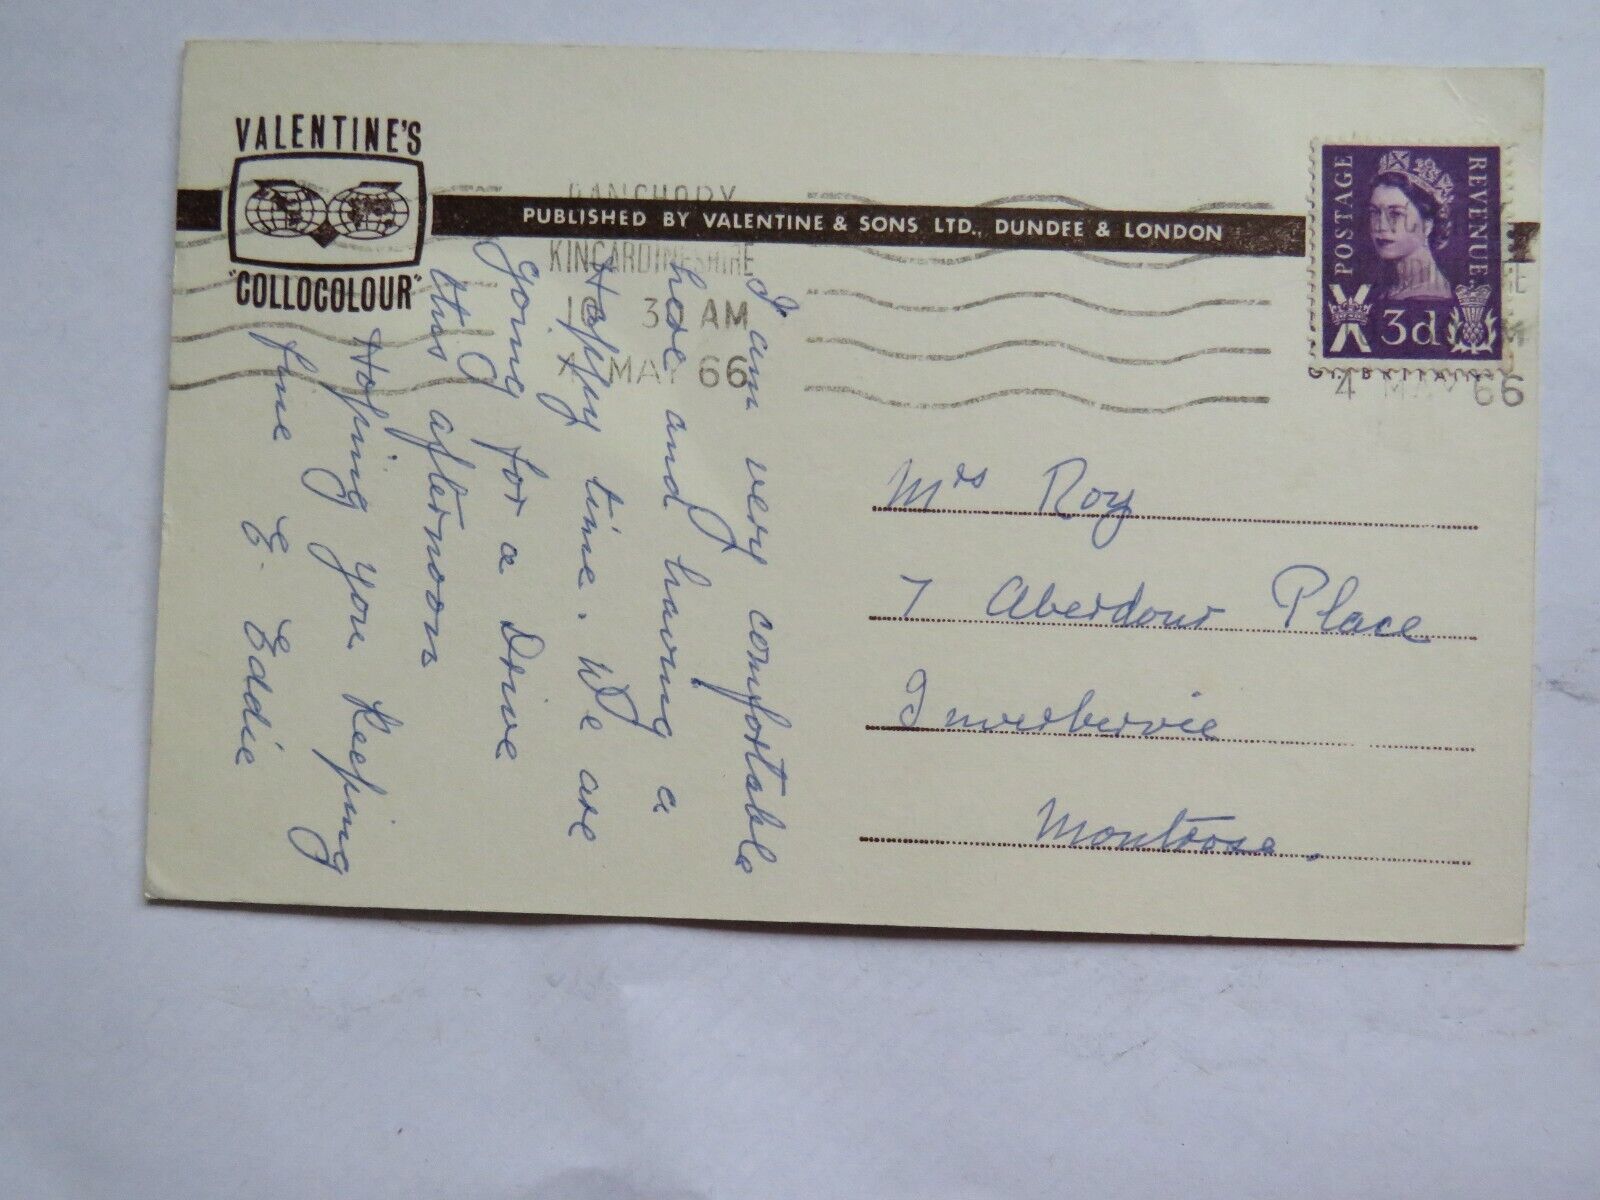 VALENTINE'S
"COLLOCOLOUR"
PUBLISHED BY VALENTINE & SONS LTD., DUNDEE & LONDON
BANCHORY
KINCARDINESHIRE
10 30 AM
4 MAY 66
POSTAGE
REVENUE
3d
4 MAY 66
I am very comfortable
here and having a
Happy time. We are
going for a Drive
this afternoon
Hoping you keeping
fine E. Eddie
Mrs Roy
7 Aberdour Place
Inverbervie
Montrose.